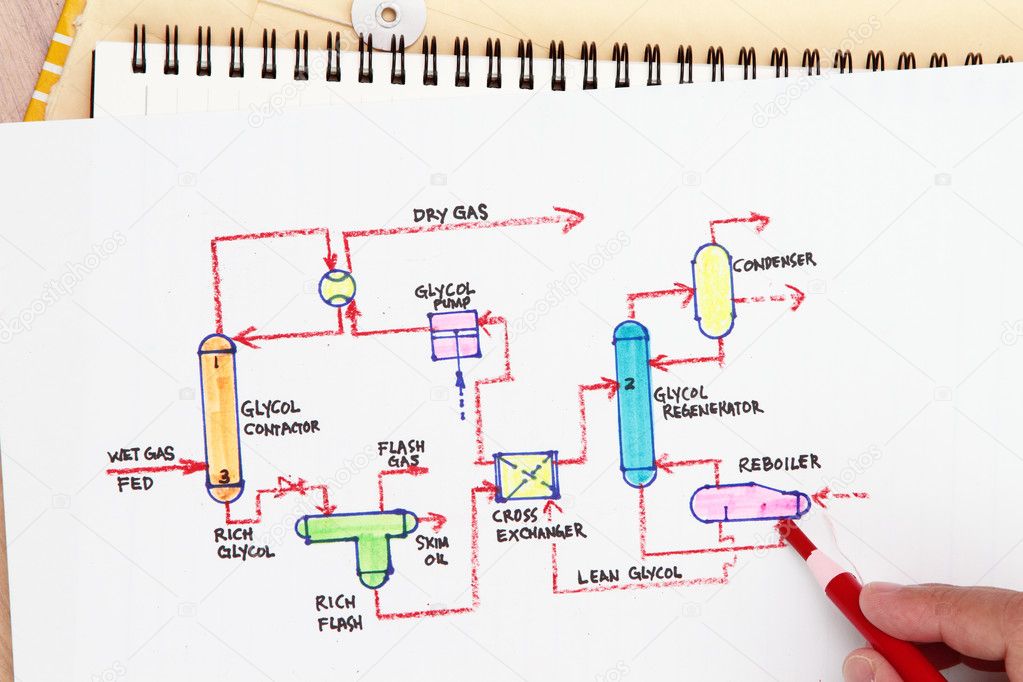 DRY GAS
GLYCOL
PUMP
CONDENSER
1
2
GLYCOL
REGENERATOR
GLYCOL
CONTACTOR
WET GAS
FED
3
FLASH
GAS
REBOILER
RICH
GLYCOL
SKIM
OIL
CROSS
EXCHANGER
LEAN GLYCOL
RICH
FLASH
depositphotos